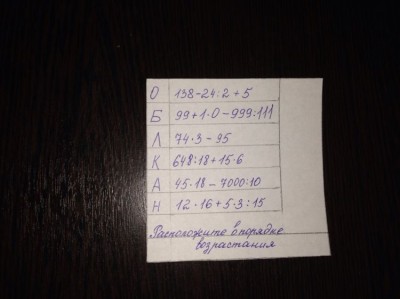 О 138-24:2+5
Б 99+1·0-999:111
Л 74·3-95
К 648:18+15·6
А 45·18-7000:10
Н 12·16+5·3:15
Расположите в порядке
возрастания